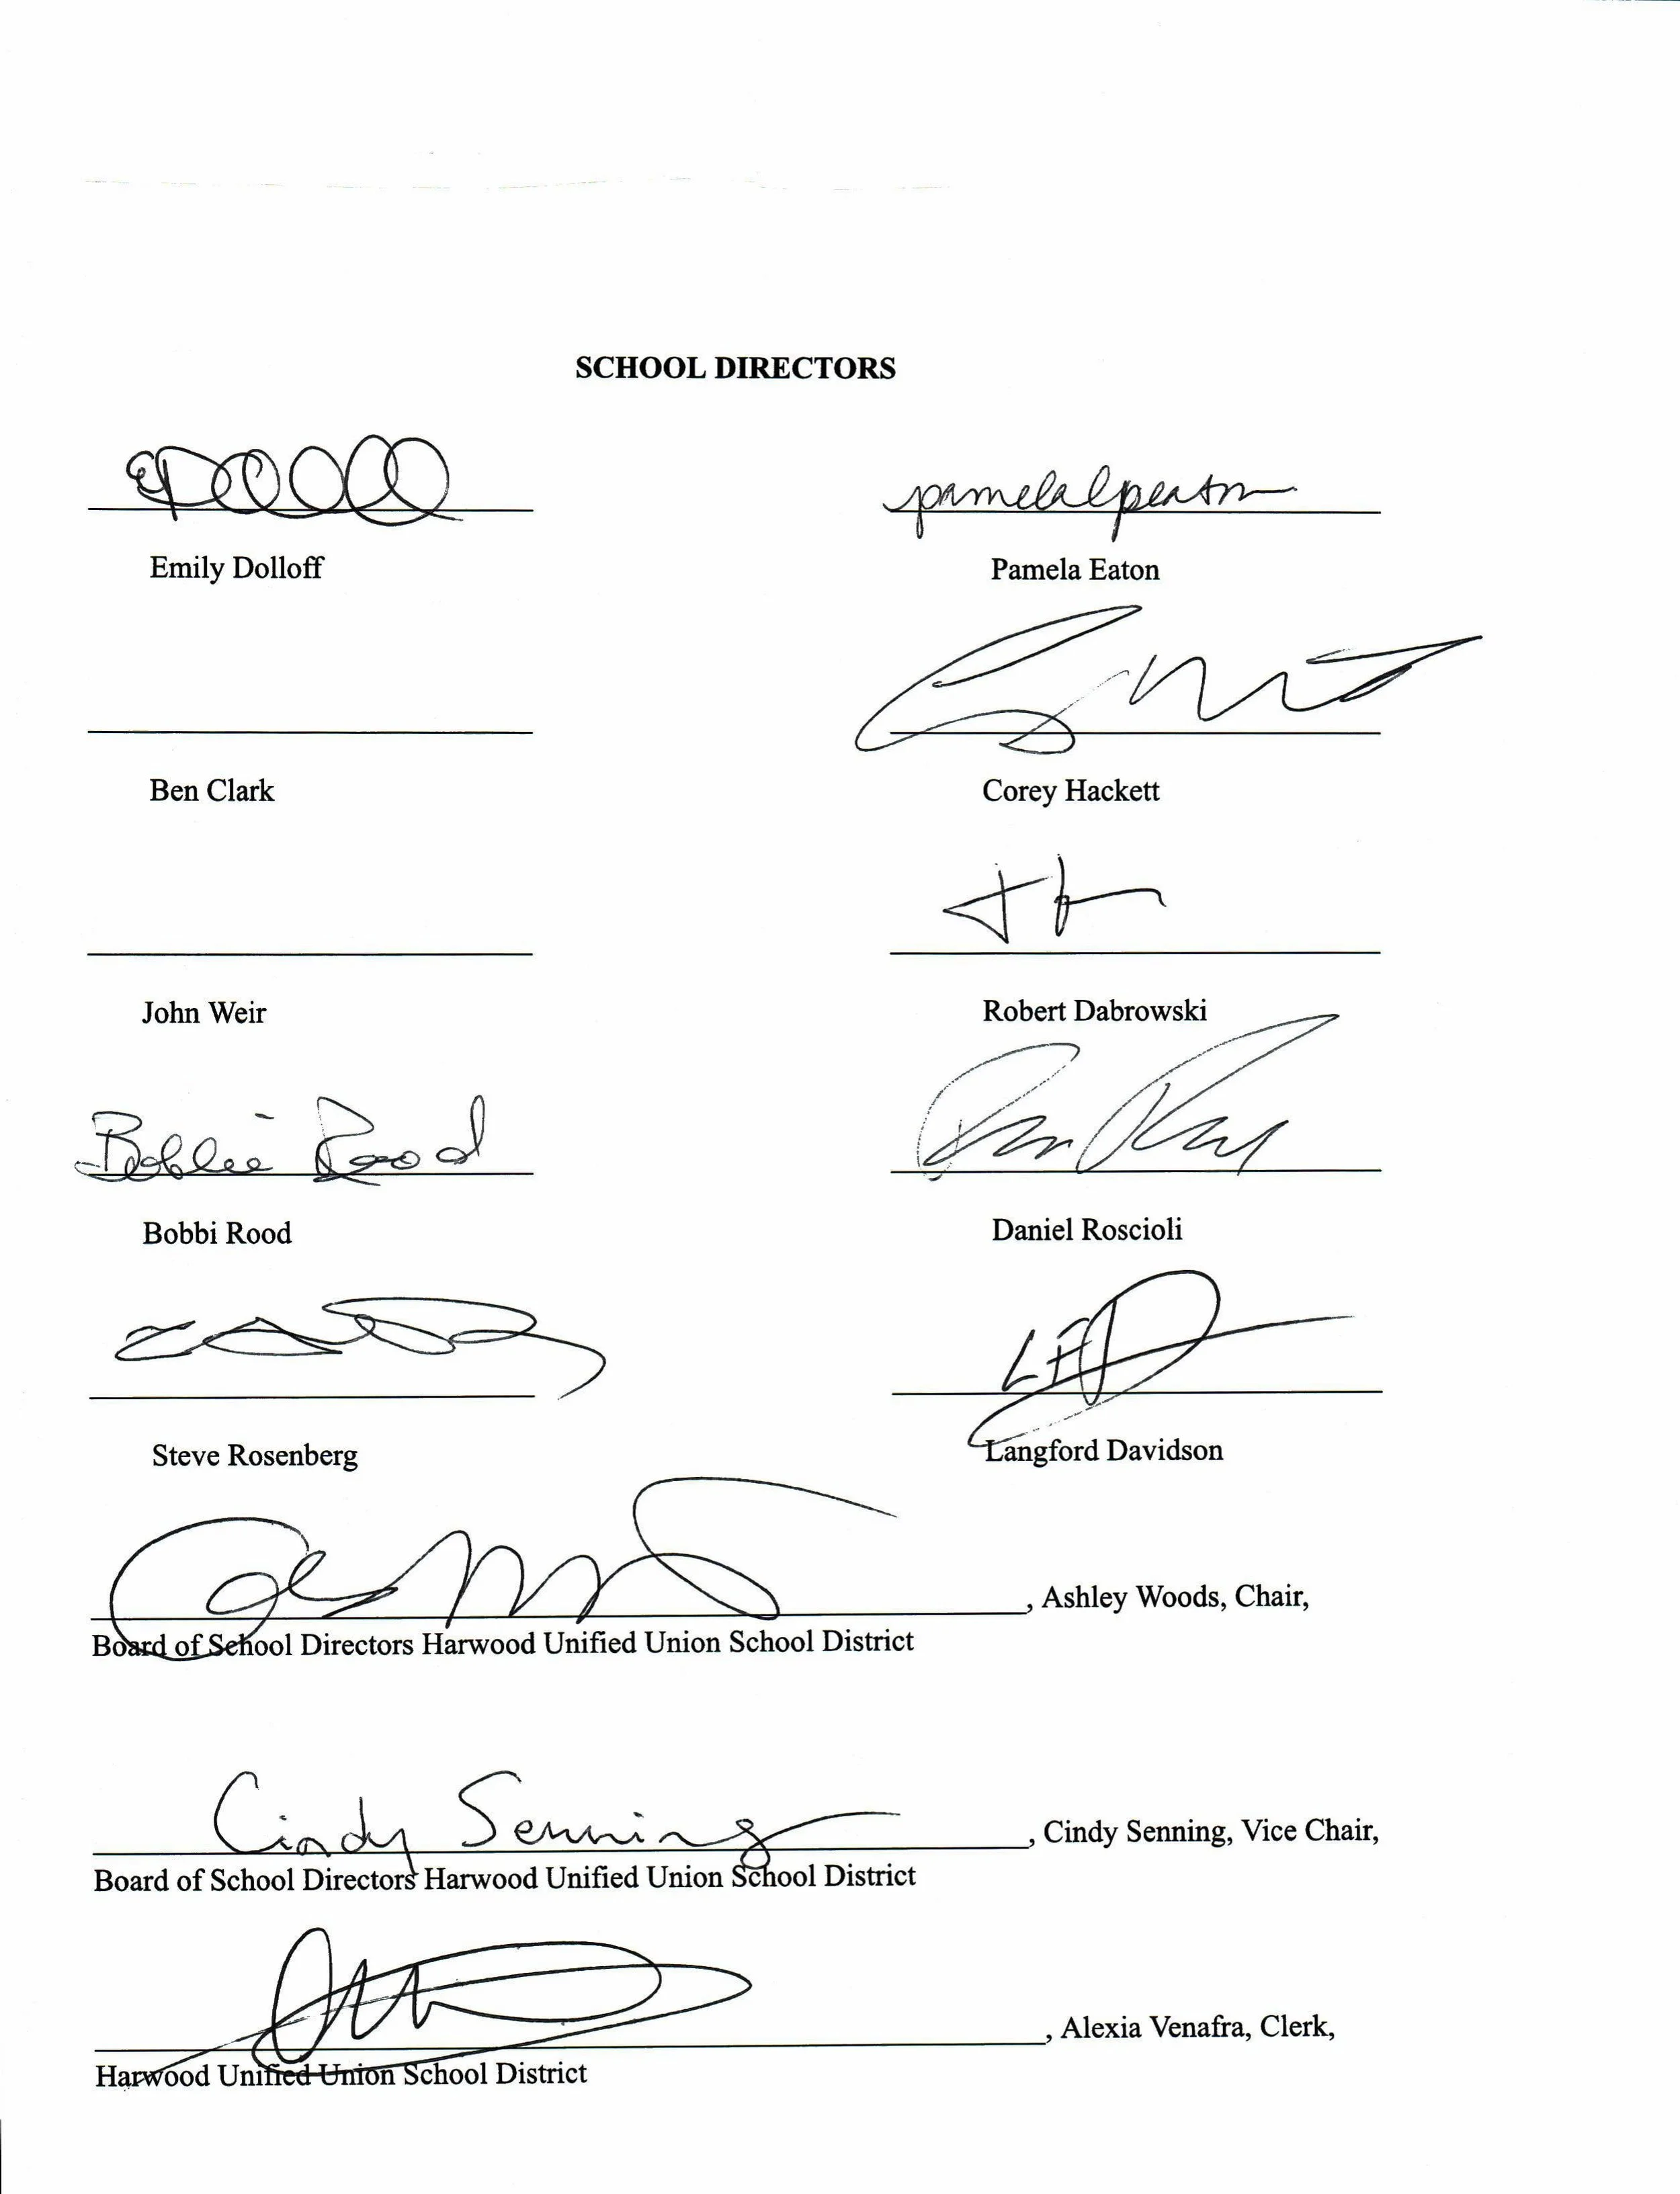 SCHOOL DIRECTORS
pamelalpeaton
Emily Dolloff
Pamela Eaton
Ben Clark
Corey Hackett
John Weir
Robert Dabrowski
Bobbie Rood
Bobbi Rood
Daniel Roscioli
LFD
Steve Rosenberg
Langford Davidson
, Ashley Woods, Chair,
Board of School Directors Harwood Unified Union School District
Cindy Senning , Cindy Senning, Vice Chair,
Board of School Directors Harwood Unified Union School District
, Alexia Venafra, Clerk,
Harwood Unified Union School District